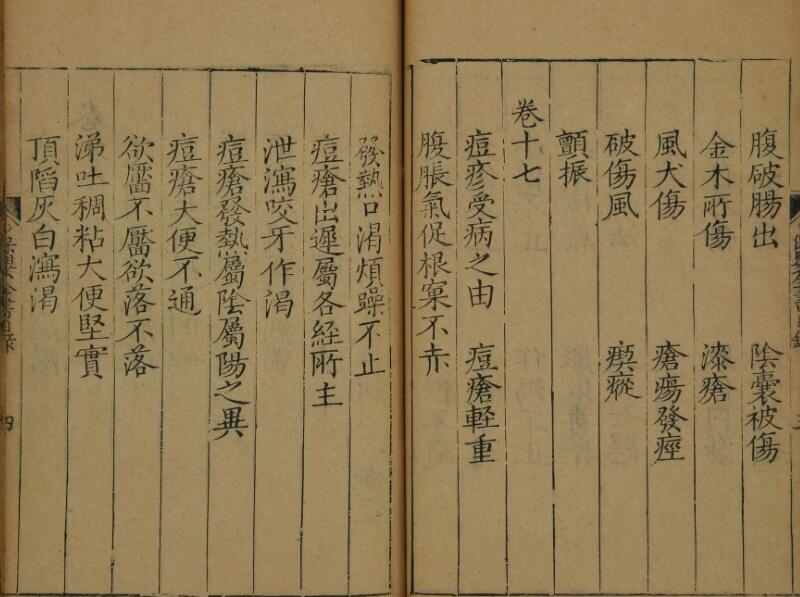 腹破腸出　陰囊被傷
金木所傷　漆瘡
風犬傷　瘡瘍發痙
破傷風　瘈瘲
顫振
卷十七
痘疹受病之由　痘瘡軽重
腹脹氣促根窠不赤
發熱口渴煩躁不止
痘瘡出遲屬各経所主
泄瀉咬牙作渴
痘瘡發熱屬陰屬陽之異
痘瘡大便不通
欲靨不靨欲落不落
涕吐稠粘大便堅實
頂陷灰白瀉渴
四